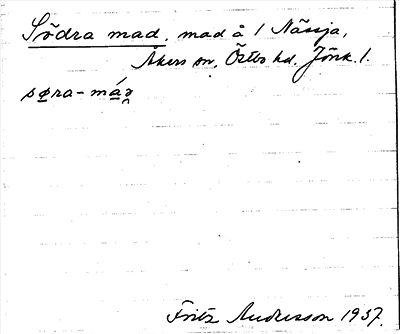 Södra mad, mad å 1 Nässja,
Åkers sn, Östbo hd, Jönk. l.
søra-má
Fritz Andersson 1937.